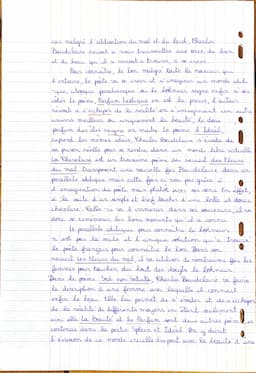 car malgré l'addiction du mal et du laid, Charles
Baudelaire réussit à nous transmettre une once de bien
et de beau qu'il a réussi à trouver, à se créer.
Pour connaître, le bon malgré toute la noirceur qui
l'entoure, le poète va se créer et s'imaginer un monde
utopique paradisiaque où le bonheur règne enfin à ses
côtés le poème, Parfum Exotique en est le poème, l'auteur
réussit à s'échapper de la réalité en s'imaginant un autre
univers meilleur où uniquement la beauté, le doux
parfum des îles règne en maître le poème l'Idéal,
reprend les mêmes idées, Charles Baudelaire s'évade de
sa prison réelle pour se rendre dans un monde
La Chevelure est un troisième poème des recueil des Fleurs
du mal transposant une nouvelle fois Baudelaire dans un
parallèle idyllique mais cette fois ci non pas grâce à
l'imagination du poète mais plutôt avec ses sens. En effet,
à la suite d'un simple et bref toucher d'une belle et douce
chevelure, Celle-ci va le ramener dans ses souvenirs, il va
donc se remémorer les bons moments qu'il a connu.
Le parallèle idyllique pour connaître le bonheur
n'est pas la seule et l'unique solution qu'a trouvé
le poète français pour connaître le bon. Dans son
recueil Les Fleurs du mal, il va utiliser de nombreuses fois les
femmes pour toucher du bout des doigts le bonheur.
Dans le poème Sed non satiata, Charles Baudelaire va faire
la description d'une femme avec laquelle il connaît
enfin le beau. Elle lui permet de s'évader et de s'échapper
de la réalité de différents moyens en étant seulement
avec elle. La Beauté et Le Parfum sont deux autres poèmes
contenus dans la partie Spleen et Idéal. On y décrit
l'évasion de ce monde cruel dispart avec la beauté d'une